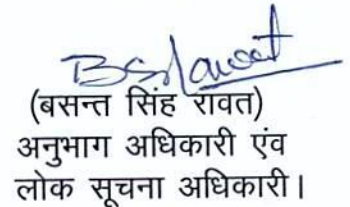 (बसन्त सिंह रावत)
अनुभाग अधिकारी एंव
लोक सूचना अधिकारी।